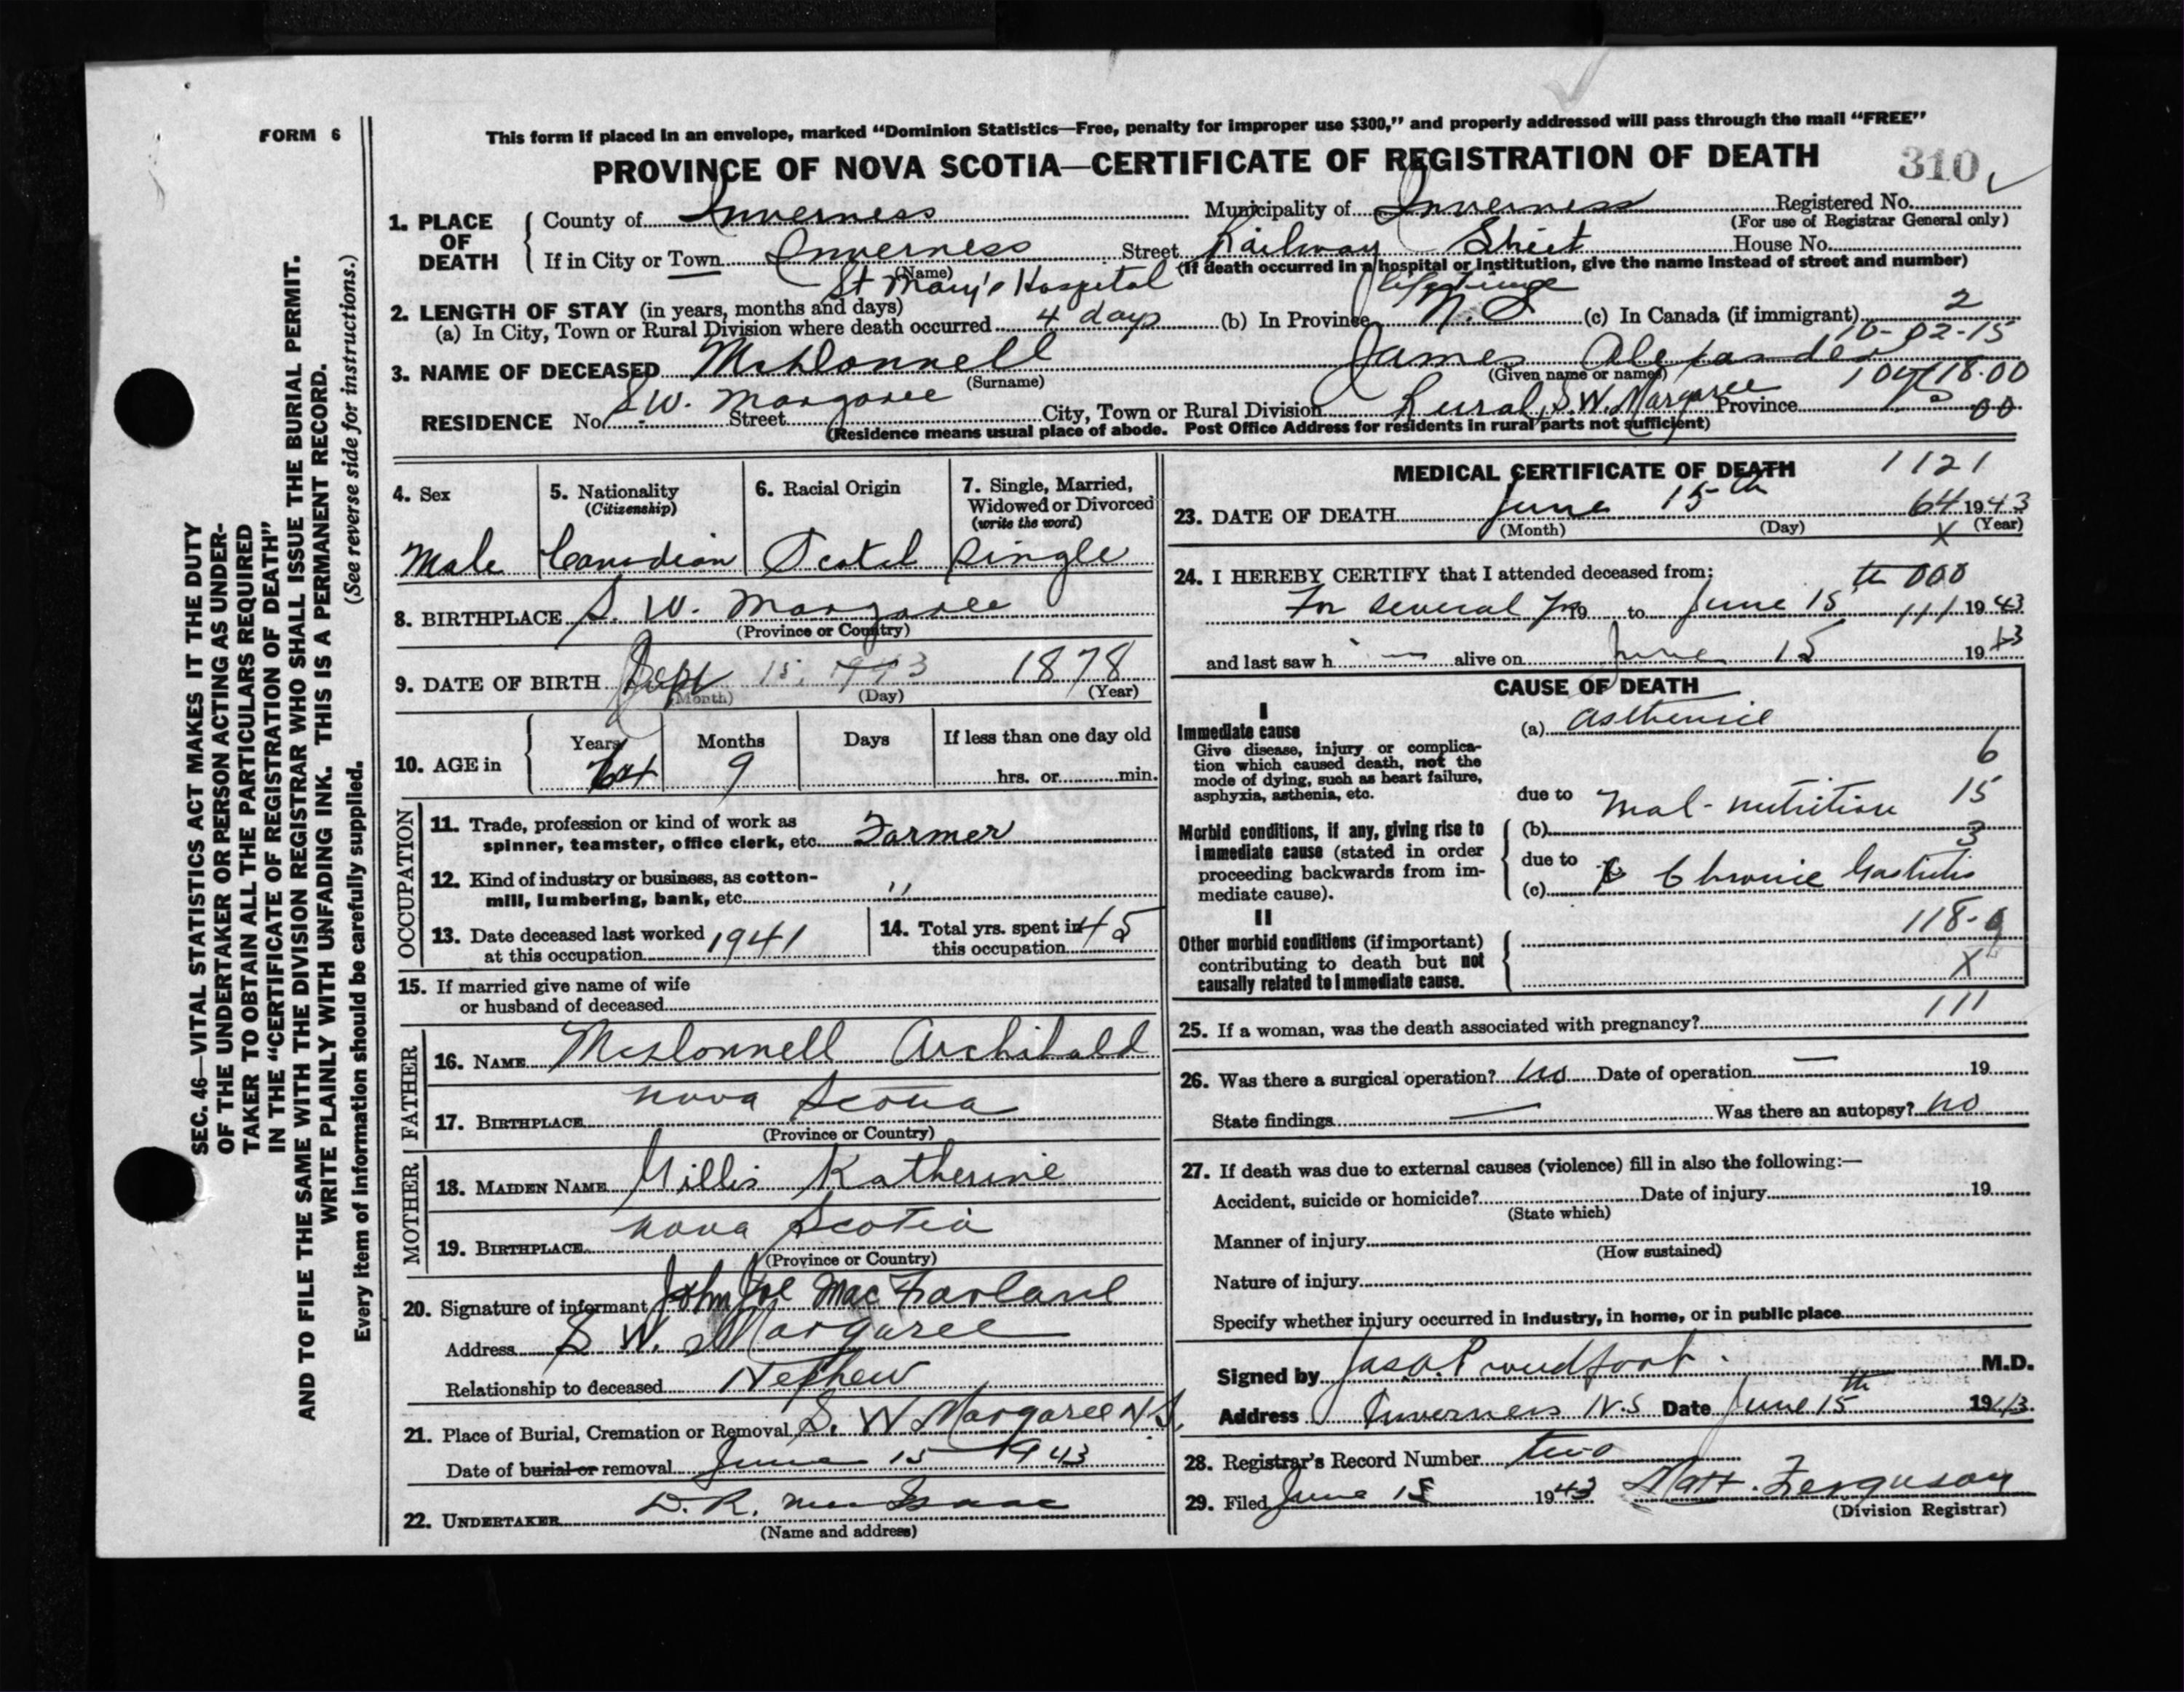 FORM 6
This form if placed in an envelope, marked “Dominion Statistics—Free, penalty for improper use $300,” and properly addressed will pass through the mail “FREE”
PROVINCE OF NOVA SCOTIA—CERTIFICATE OF REGISTRATION OF DEATH 310
SEC. 46—VITAL STATISTICS ACT MAKES IT THE DUTY
OF THE UNDERTAKER OR PERSON ACTING AS UNDER-
TAKER TO OBTAIN ALL THE PARTICULARS REQUIRED
IN THE “CERTIFICATE OF REGISTRATION OF DEATH”
AND TO FILE THE SAME WITH THE DIVISION REGISTRAR WHO SHALL ISSUE THE BURIAL PERMIT.
WRITE PLAINLY WITH UNFADING INK. THIS IS A PERMANENT RECORD.
Every item of information should be carefully supplied. (See reverse side for instructions.)
1. PLACE OF DEATH
County of Inverness Municipality of Inverness Registered No.
(For use of Registrar General only)
If in City or Town Inverness Street Railway Street House No.
(Name) (If death occurred in a hospital or institution, give the name instead of street and number)
St Mary's Hospital
2. LENGTH OF STAY (in years, months and days) Life time
(a) In City, Town or Rural Division where death occurred 4 days (b) In Province N.S (c) In Canada (if immigrant) 2
10-02-15
3. NAME OF DECEASED McDonnell James Alexander
(Surname) (Given name or names)
RESIDENCE No. S.W. Margaree Street City, Town or Rural Division Rural, S.W. Margaree Province
(Residence means usual place of abode. Post Office Address for residents in rural parts not sufficient)
4. Sex
Male
5. Nationality
(Citizenship)
Canadian
6. Racial Origin
Scotch
7. Single, Married,
Widowed or Divorced
(write the word)
Single
8. BIRTHPLACE S. W. Margaree
(Province or Country)
9. DATE OF BIRTH Sept 15, 1943 1878
(Month) (Day) (Year)
10. AGE in Years Months Days If less than one day old
64 9 hrs. or min.
OCCUPATION
11. Trade, profession or kind of work as
spinner, teamster, office clerk, etc. Farmer
12. Kind of industry or business, as cotton-
mill, lumbering, bank, etc. "
13. Date deceased last worked
at this occupation 1941
14. Total yrs. spent in
this occupation 45
15. If married give name of wife
or husband of deceased
FATHER
16. NAME McDonnell Archibald
17. BIRTHPLACE Nova Scotia
(Province or Country)
MOTHER
18. MAIDEN NAME Gillis Katherine
19. BIRTHPLACE Nova Scotia
(Province or Country)
20. Signature of informant John Joe MacFarlane
Address S. W. Margaree
Relationship to deceased Nephew
21. Place of Burial, Cremation or Removal S. W Margaree N.S.
Date of burial or removal June 15 1943
22. UNDERTAKER D. R. MacIsaac
(Name and address)
MEDICAL CERTIFICATE OF DEATH 1121
23. DATE OF DEATH June 15th 64 1943
(Month) (Day) (Year)
X
24. I HEREBY CERTIFY that I attended deceased from: 000
For several yrs 19 to June 15th 111 1943
and last saw h — alive on June 15 1943
CAUSE OF DEATH
I
Immediate cause
Give disease, injury or complica-
tion which caused death, not the
mode of dying, such as heart failure,
asphyxia, asthenia, etc.
(a) asthenia
6
due to
(b) Mal-nutrition 15
Morbid conditions, if any, giving rise to
immediate cause (stated in order
proceeding backwards from im-
mediate cause).
3
due to
(c) Chronic Gastritis
II
Other morbid conditions (if important)
contributing to death but not
causally related to immediate cause.
X
25. If a woman, was the death associated with pregnancy? 111
26. Was there a surgical operation? no Date of operation — 19
State findings — Was there an autopsy? no
27. If death was due to external causes (violence) fill in also the following:—
Accident, suicide or homicide? Date of injury 19
(State which)
Manner of injury
(How sustained)
Nature of injury
Specify whether injury occurred in industry, in home, or in public place
Signed by Jas. A. Proudfoot M.D.
Address Inverness N.S Date June 15th 1943
28. Registrar's Record Number two
29. Filed June 15 1943 Matt. Ferguson
(Division Registrar)